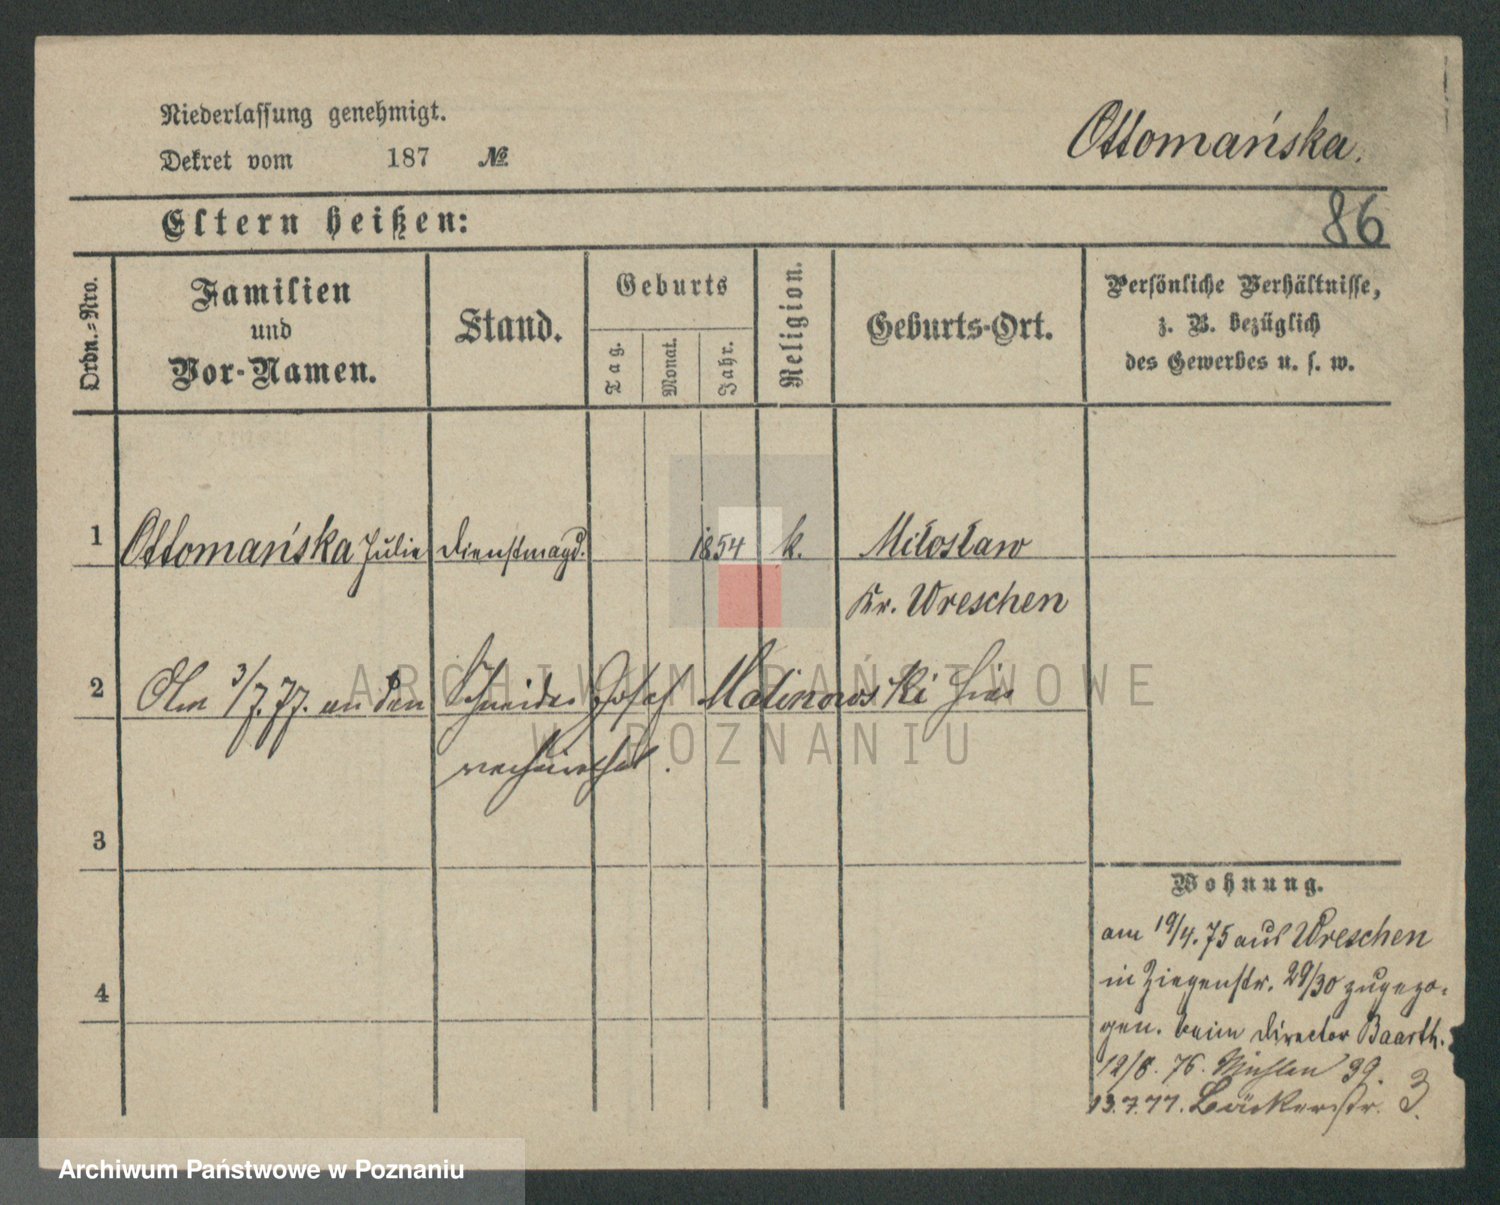 Niederlassung genehmigt.
Dekret vom 187 №
Ottomańska.
Eltern heißen:
86
Ordn.=Nro.
Familien
und
Vor-Namen.
Stand.
Geburts
Tag.
Monat.
Jahr.
Religion.
Geburts-Ort.
Persönliche Verhältnisse,
z. B. bezüglich
des Gewerbes u. s. w.
1 Ottomańska Julie Dienstmagd. 1854 k. Miłosław
Kr. Wreschen
2 Am 3/7. 77. an den Schneider Josef Malinowski hier
verheirathet.
3
4
Wohnung.
am 19/4. 75 aus Wreschen
in Ziegenstr. 29/30 zugezo-
gen. beim Director Baarth.
12/8. 76. Mühlen 39.
13.7.77. Bäckerstr. 3.
ARCHIWUM PAŃSTWOWE
W POZNANIU
Archiwum Państwowe w Poznaniu